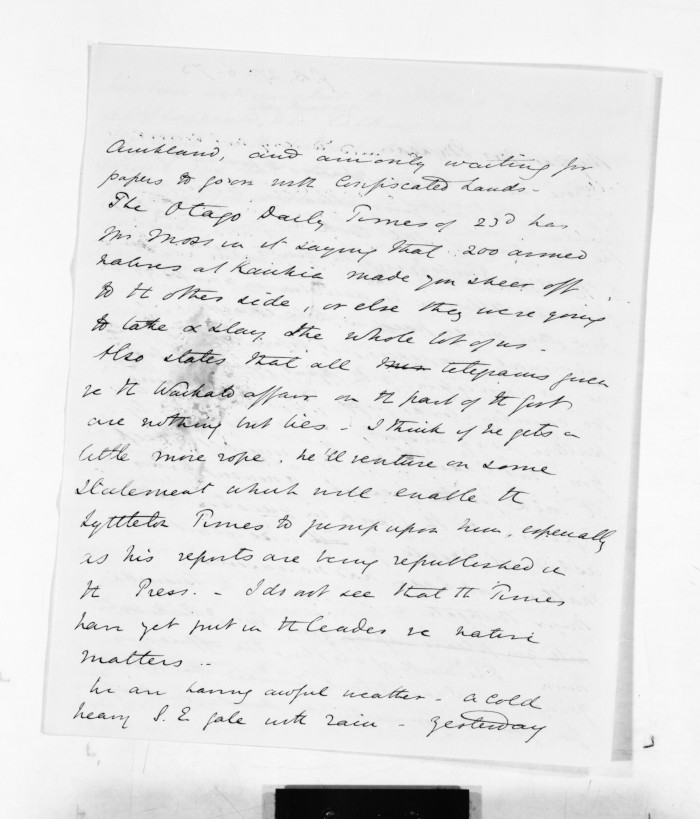 Auckland, and am only waiting for
papers to go on with Confiscated Lands -
The Otago Daily Times of 23d has
Mr Moss in it saying that 200 armed
natives at Kaukia made you sheer off
to tt other side, or else they were going
to take & slay the whole lot of us -
Also states that all telegrams given
re tt Waikato affair on tt part of tt Govt
are nothing but lies - I think if he gets a
little more rope, he'll venture on some
statement which will enable tt
Lyttleton Times to jump upon him, especially
as his reports are being republished in
tt Press. - I do not see that tt Times
have yet put in tt leader re native
matters --
We are having awful weather - a cold
heavy S.E. gale with rain - yesterday